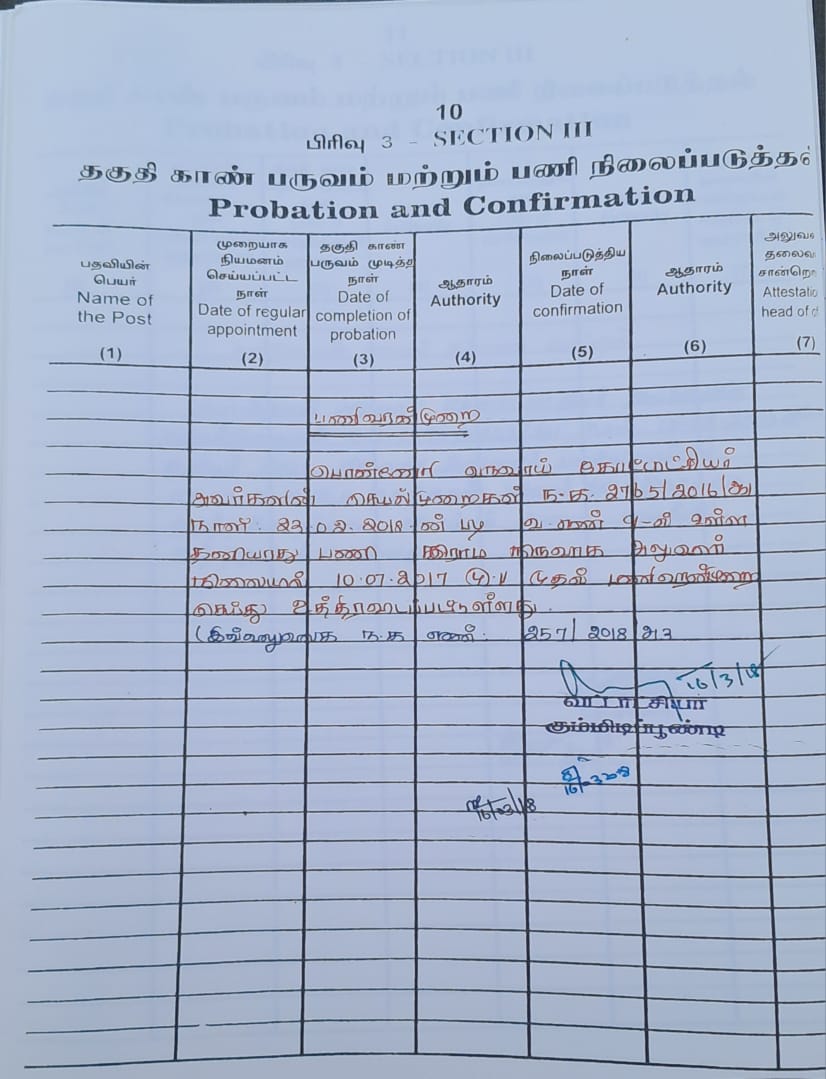 10
பிரிவு 3 - SECTION III
தகுதி காண் பருவம் மற்றும் பணி நிலைப்படுத்த
Probation and Confirmation
பதவியின் பெயர் Name of the Post (1)
முறையாக நியமனம் செய்யப்பட்ட நாள் Date of regular appointment (2)
தகுதி காண் பருவம் முடித்த நாள் Date of completion of probation (3)
ஆதாரம் Authority (4)
நிலைப்படுத்திய நாள் Date of confirmation (5)
ஆதாரம் Authority (6)
அலுவ தலைவ சான்றொ Attestatio head of (7)
பணிவரன்முறை
பொன்னேரி வருவாய் கோட்டாட்சியர்
அவர்களின் செயல்முறைகள் ந.க. 2765/2016/அ1
நாள். 23.02.2018 ன் படி வ.எண் 9-ல் உள்ள
பணி கிராம நிருவாக அலுவலர்
10.07.2017 மு.ப முதல் பணிவரன்முறை
செய்து உத்திரவிடப்பட்டுள்ளது.
(இவ்வலுவலக ந.க எண். 257/2018/அ3
16/3/18
வட்டாட்சியர்
கும்மிடிப்பூண்டி
16/03/18